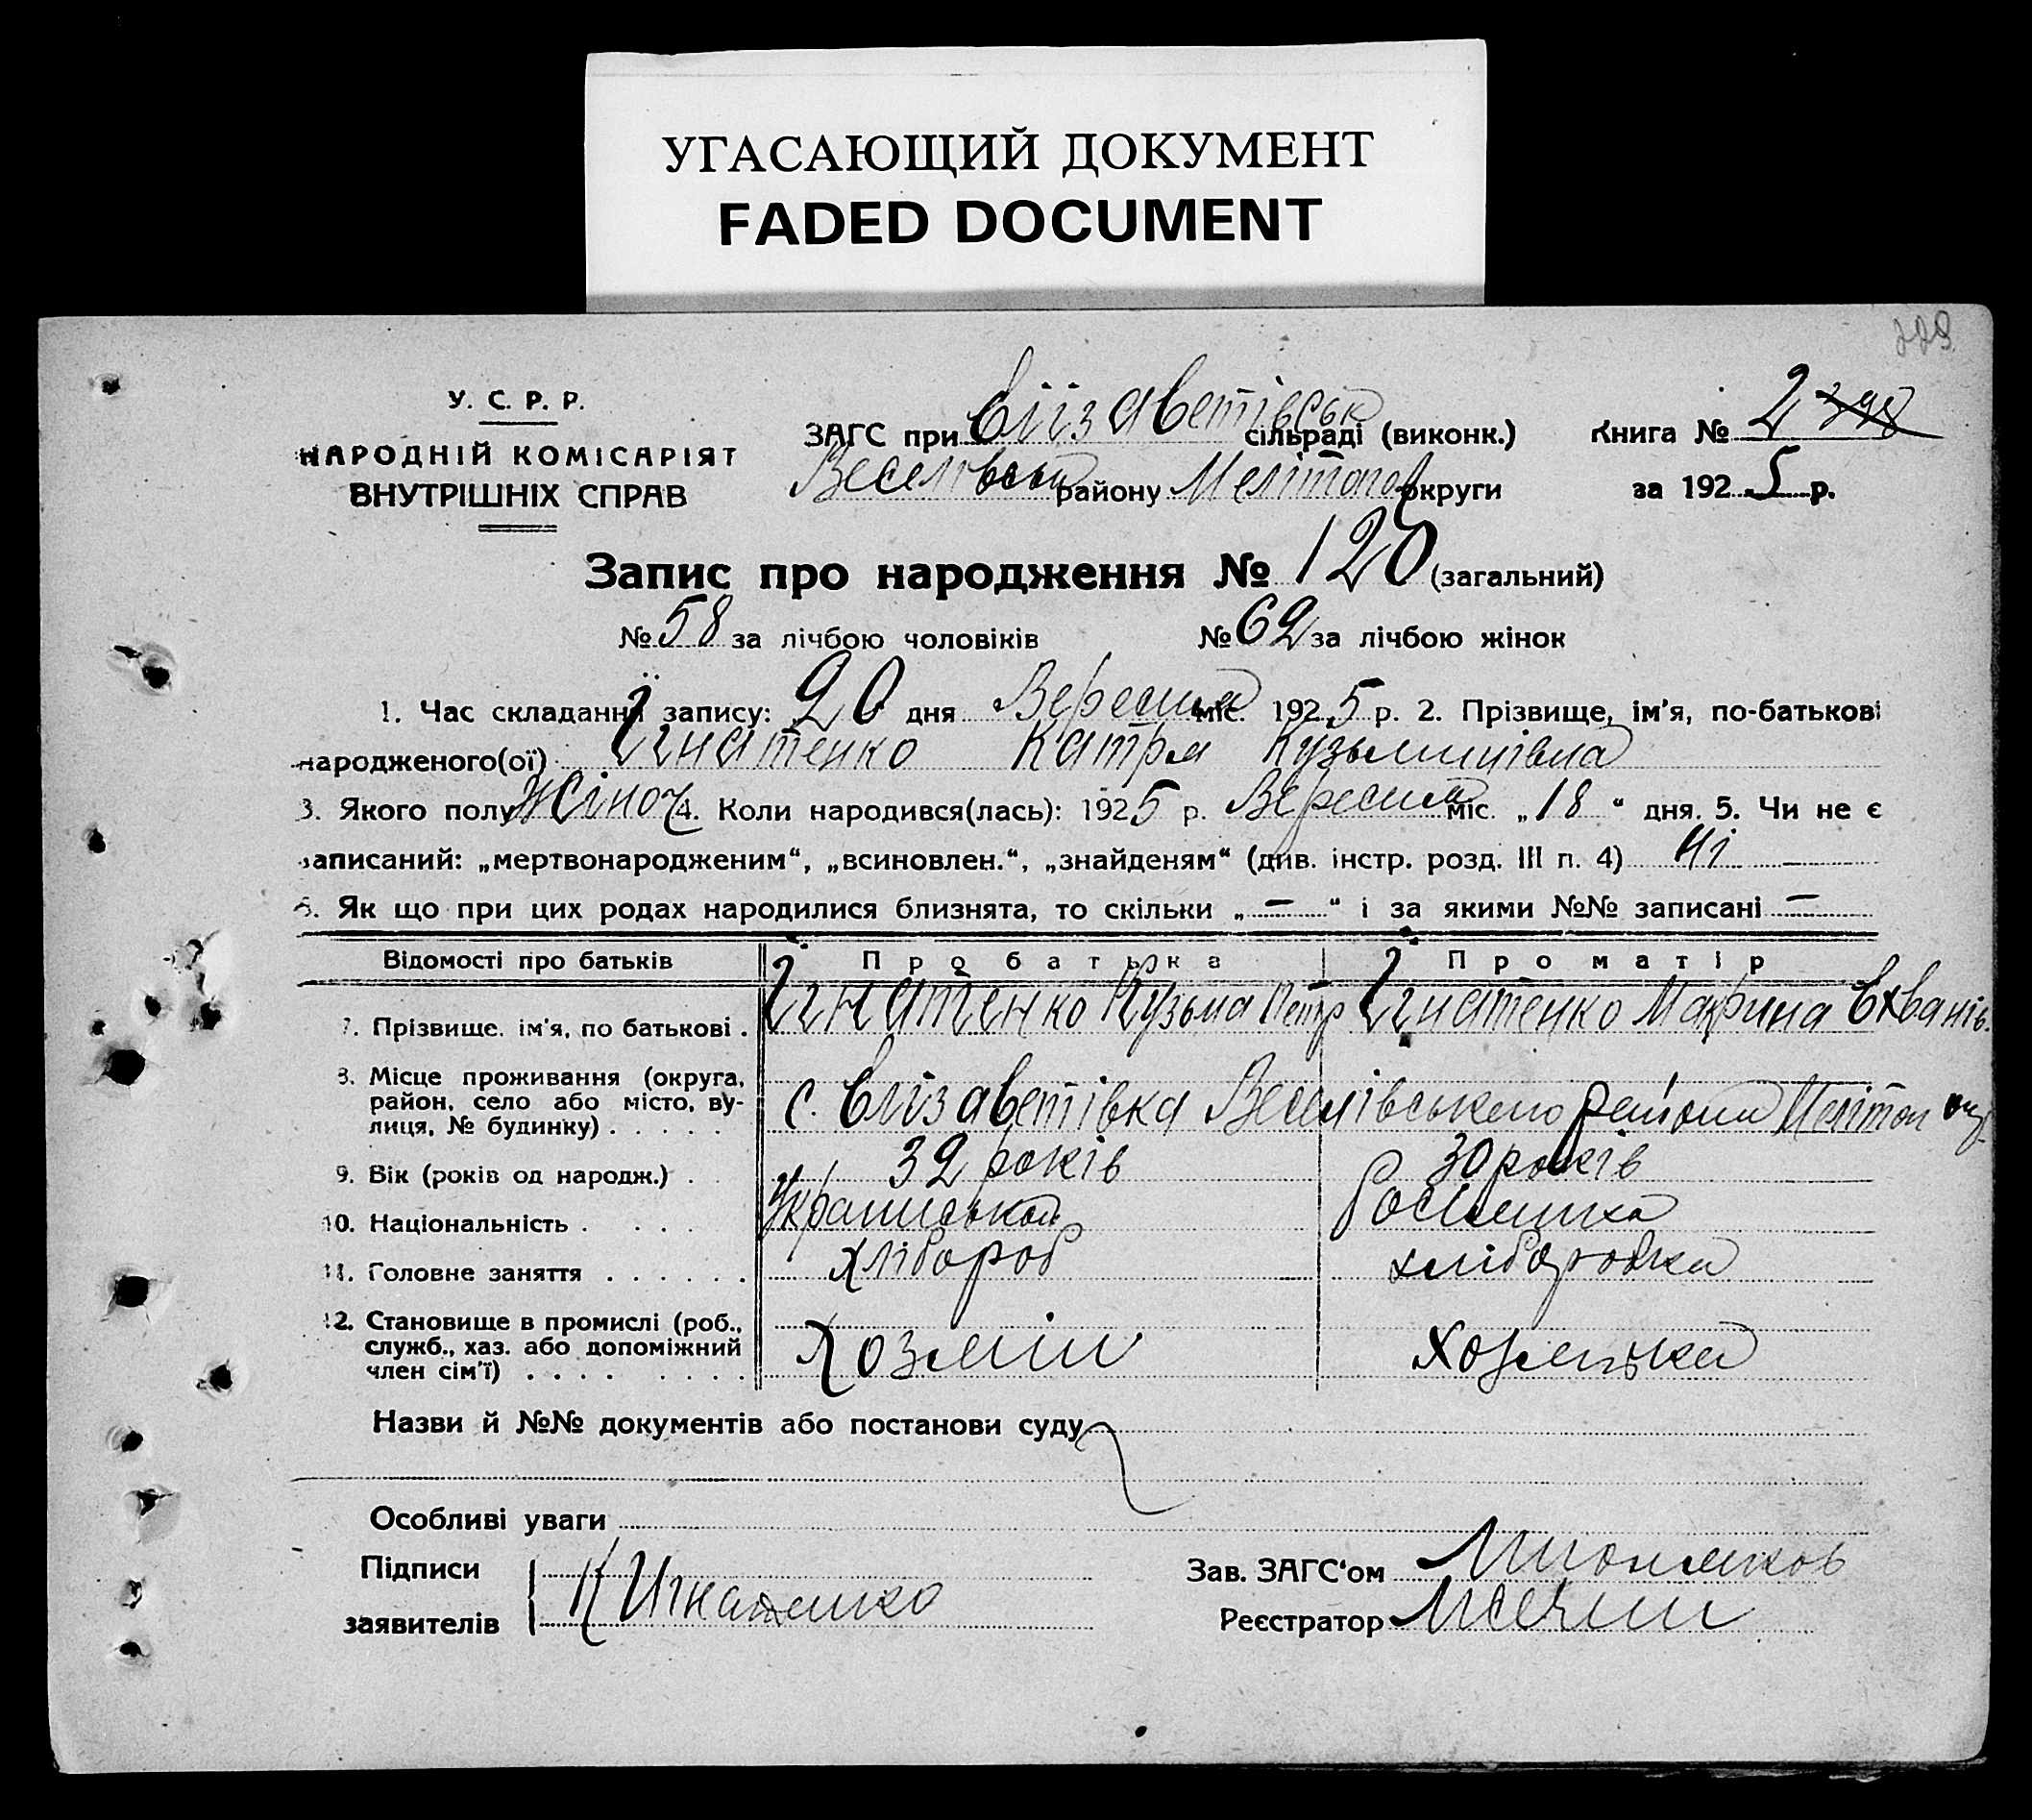 УГАСАЮЩИЙ ДОКУМЕНТ
FADED DOCUMENT
У. С. Р. Р.
НАРОДНІЙ КОМІСАРІЯТ
ВНУТРІШНІХ СПРАВ
ЗАГС при Єлізаветівськ сільраді (виконк.)
Веселівськ району Мелітопол округи
Книга № 2
за 1925 р.
Запис про народження № 120 (загальний)
№ 58 за лічбою чоловіків № 62 за лічбою жінок
1. Час складання запису: 20 дня Вересня міс. 1925 р. 2. Прізвище, ім'я, по-батькові
народженого(ої) Ігнатенко Катря Кузьминівна
3. Якого полу Жіноч 4. Коли народився(лась): 1925 р. Вересня міс. „18“ дня. 5. Чи не є
записаний: „мертвонародженим“, „всиновлен.“, „знайденям“ (див. інстр. розд. III п. 4) Ні
6. Як що при цих родах народилися близнята, то скільки „—“ і за якими №№ записані —
Відомості про батьків Про батька Про матір
7. Прізвище. ім'я, по батькові . Ігнатенко Кузьма Петр Ігнатенко Макрина
8. Місце проживання (округа,
район, село або місто, ву-
лиця, № будинку) . . . . . с. Єлізаветівка Веселівського району Мелітоп окр.
9. Вік (років од народж.) . 32 років 30 років
10. Національність . . . . Української Росіянка
11. Головне заняття . . . . . . хлібороб хліборобка
12. Становище в промислі (роб.,
служб., хаз. або допоміжний
член сім'ї) . . . . . . . . Хозяін Хозяйка
Назви й №№ документів або постанови суду
Особливі уваги
Підписи
заявителів К Игнатенко
Зав. ЗАГС‘ом
Реєстратор